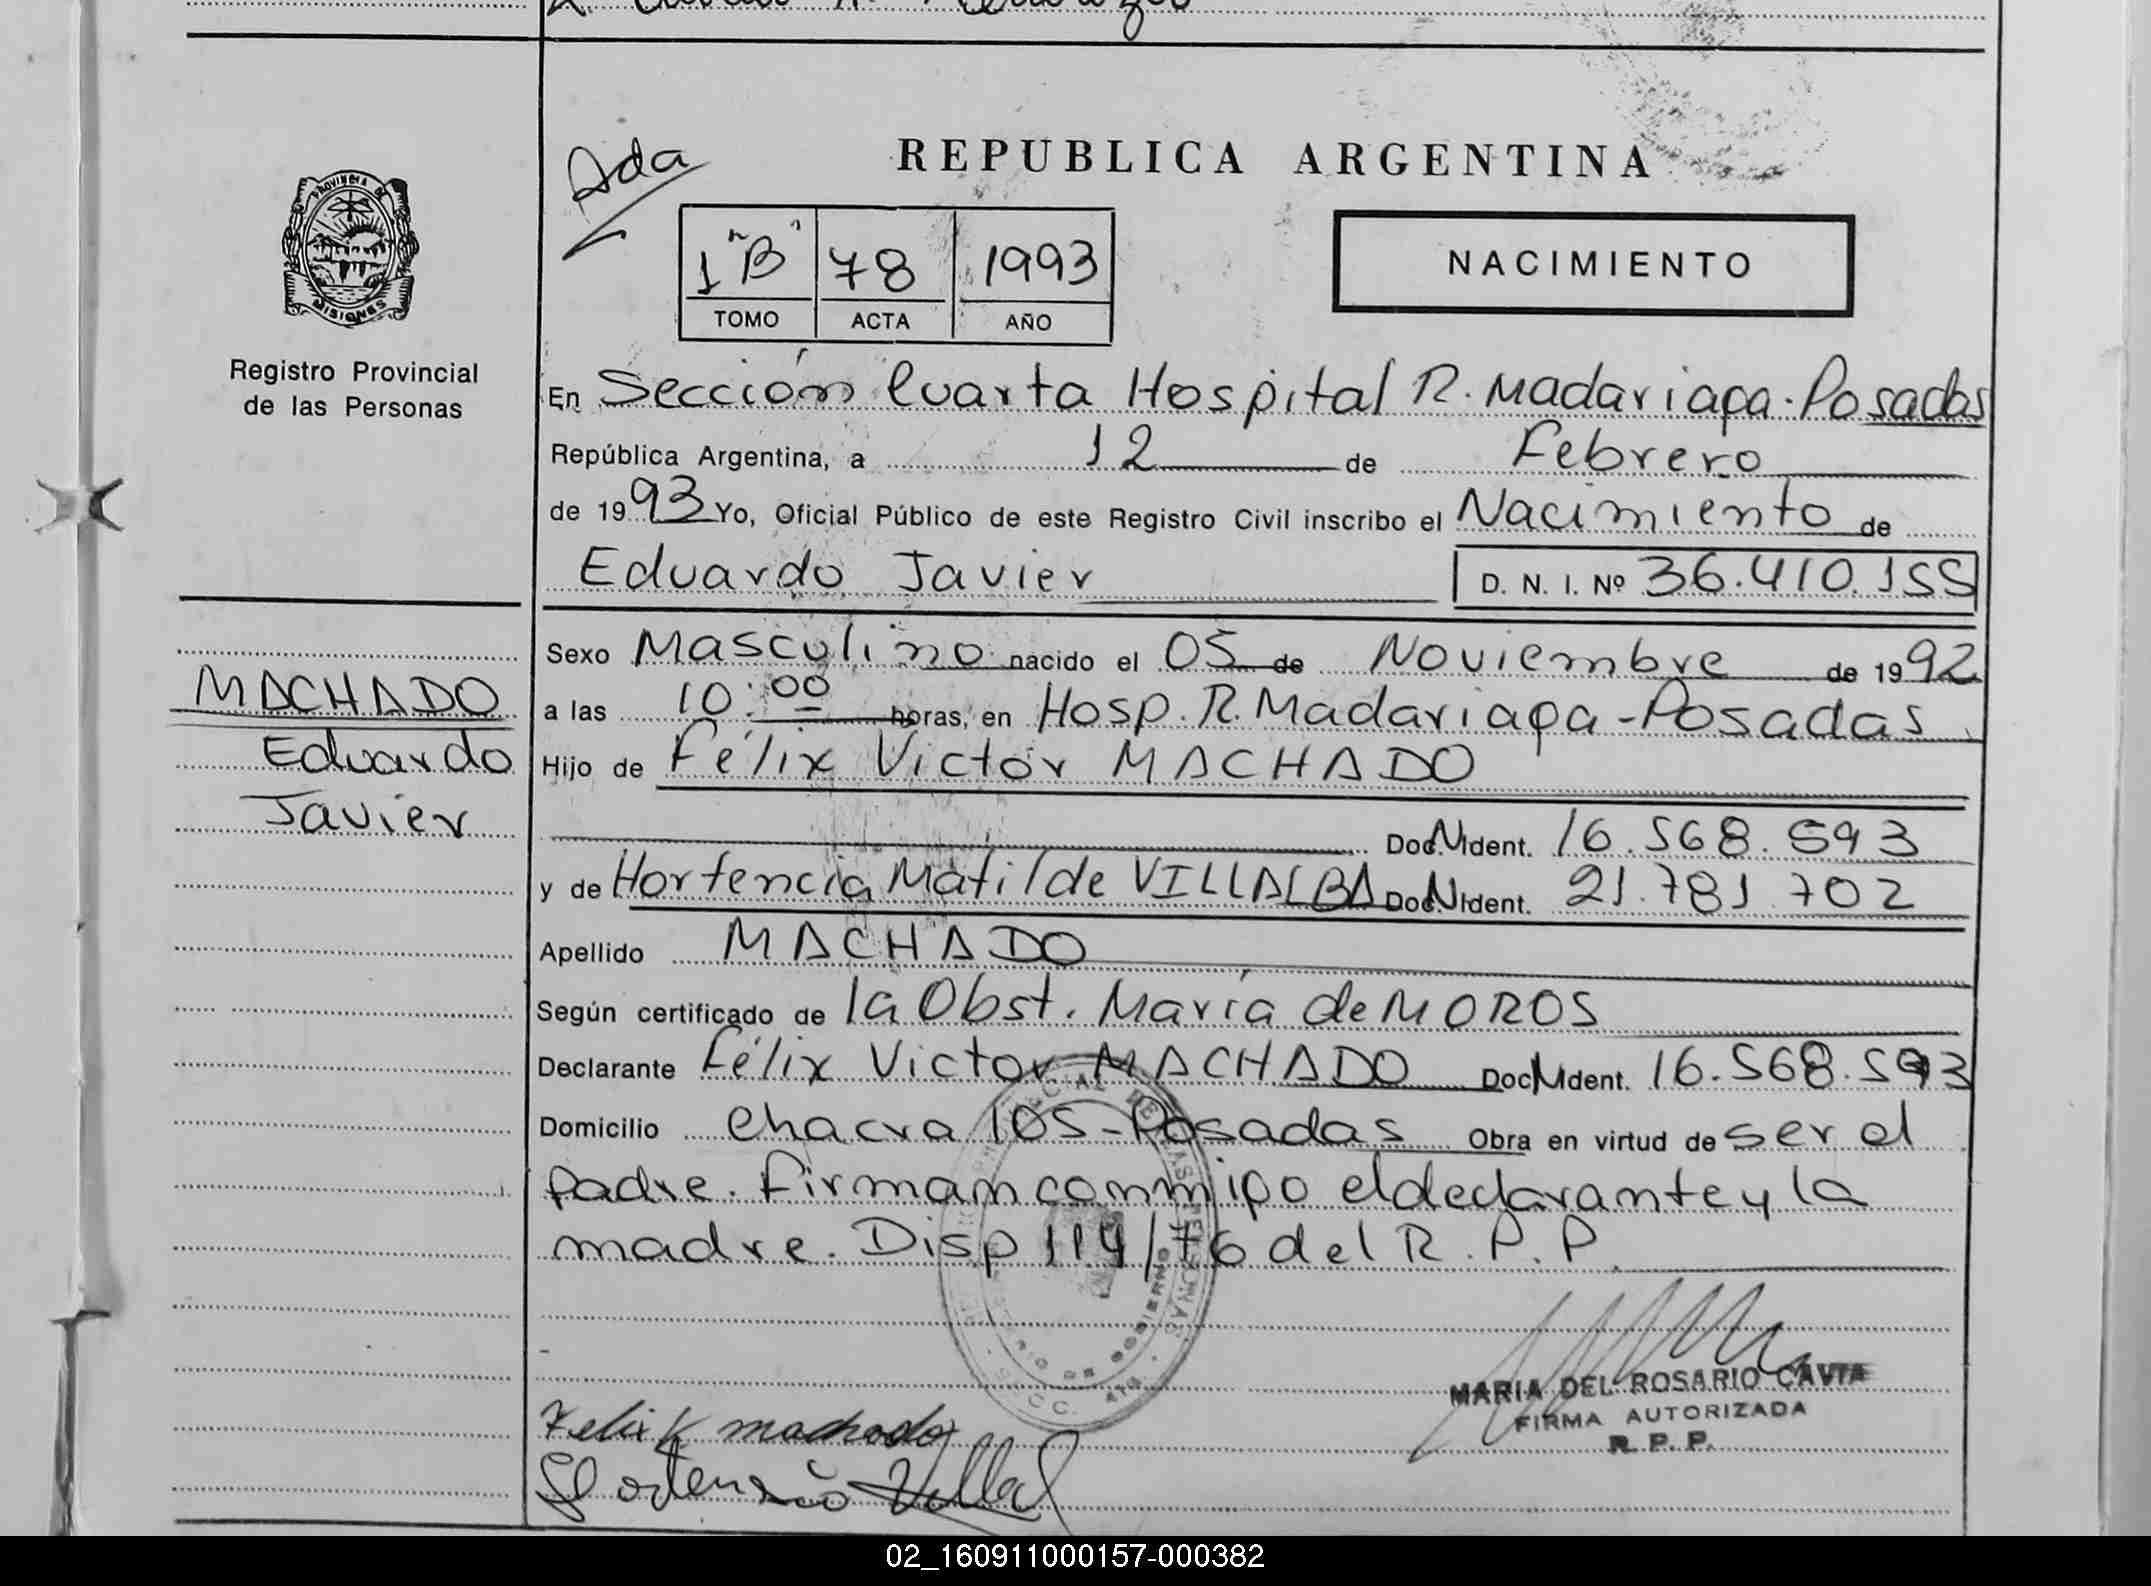 REPUBLICA ARGENTINA
Ada
1 "B" 78 1993
TOMO ACTA AÑO
NACIMIENTO
PROVINCIA DE
MISIONES
Registro Provincial
de las Personas
En Sección Cuarta Hospital R. Madariaga - Posadas
República Argentina, a 12 de Febrero
de 1993 Yo, Oficial Público de este Registro Civil inscribo el Nacimiento de
Eduardo Javier D. N. I. Nº 36.410.155
MACHADO
Eduardo
Javier
Sexo Masculino nacido el 05 de Noviembre de 1992
a las 10:00 horas, en Hosp. R. Madariaga - Posadas
Hijo de Félix Victor MACHADO
Doc. N. Ident. 16.568.593
y de Hortencia Matilde VILLALBA Doc. N. Ident. 21.781.702
Apellido MACHADO
Según certificado de la Obst. María de MOROS
Declarante Félix Victor MACHADO Doc. N. Ident. 16.568.593
Domicilio Chacra 105 - Posadas Obra en virtud de ser el
padre. Firman conmigo el declarante y la
madre. Disp 114/76 del R. P. P.
MARIA DEL ROSARIO CAVIA
FIRMA AUTORIZADA
R. P. P.
Felix V machado
Hortensia
02_160911000157-000382